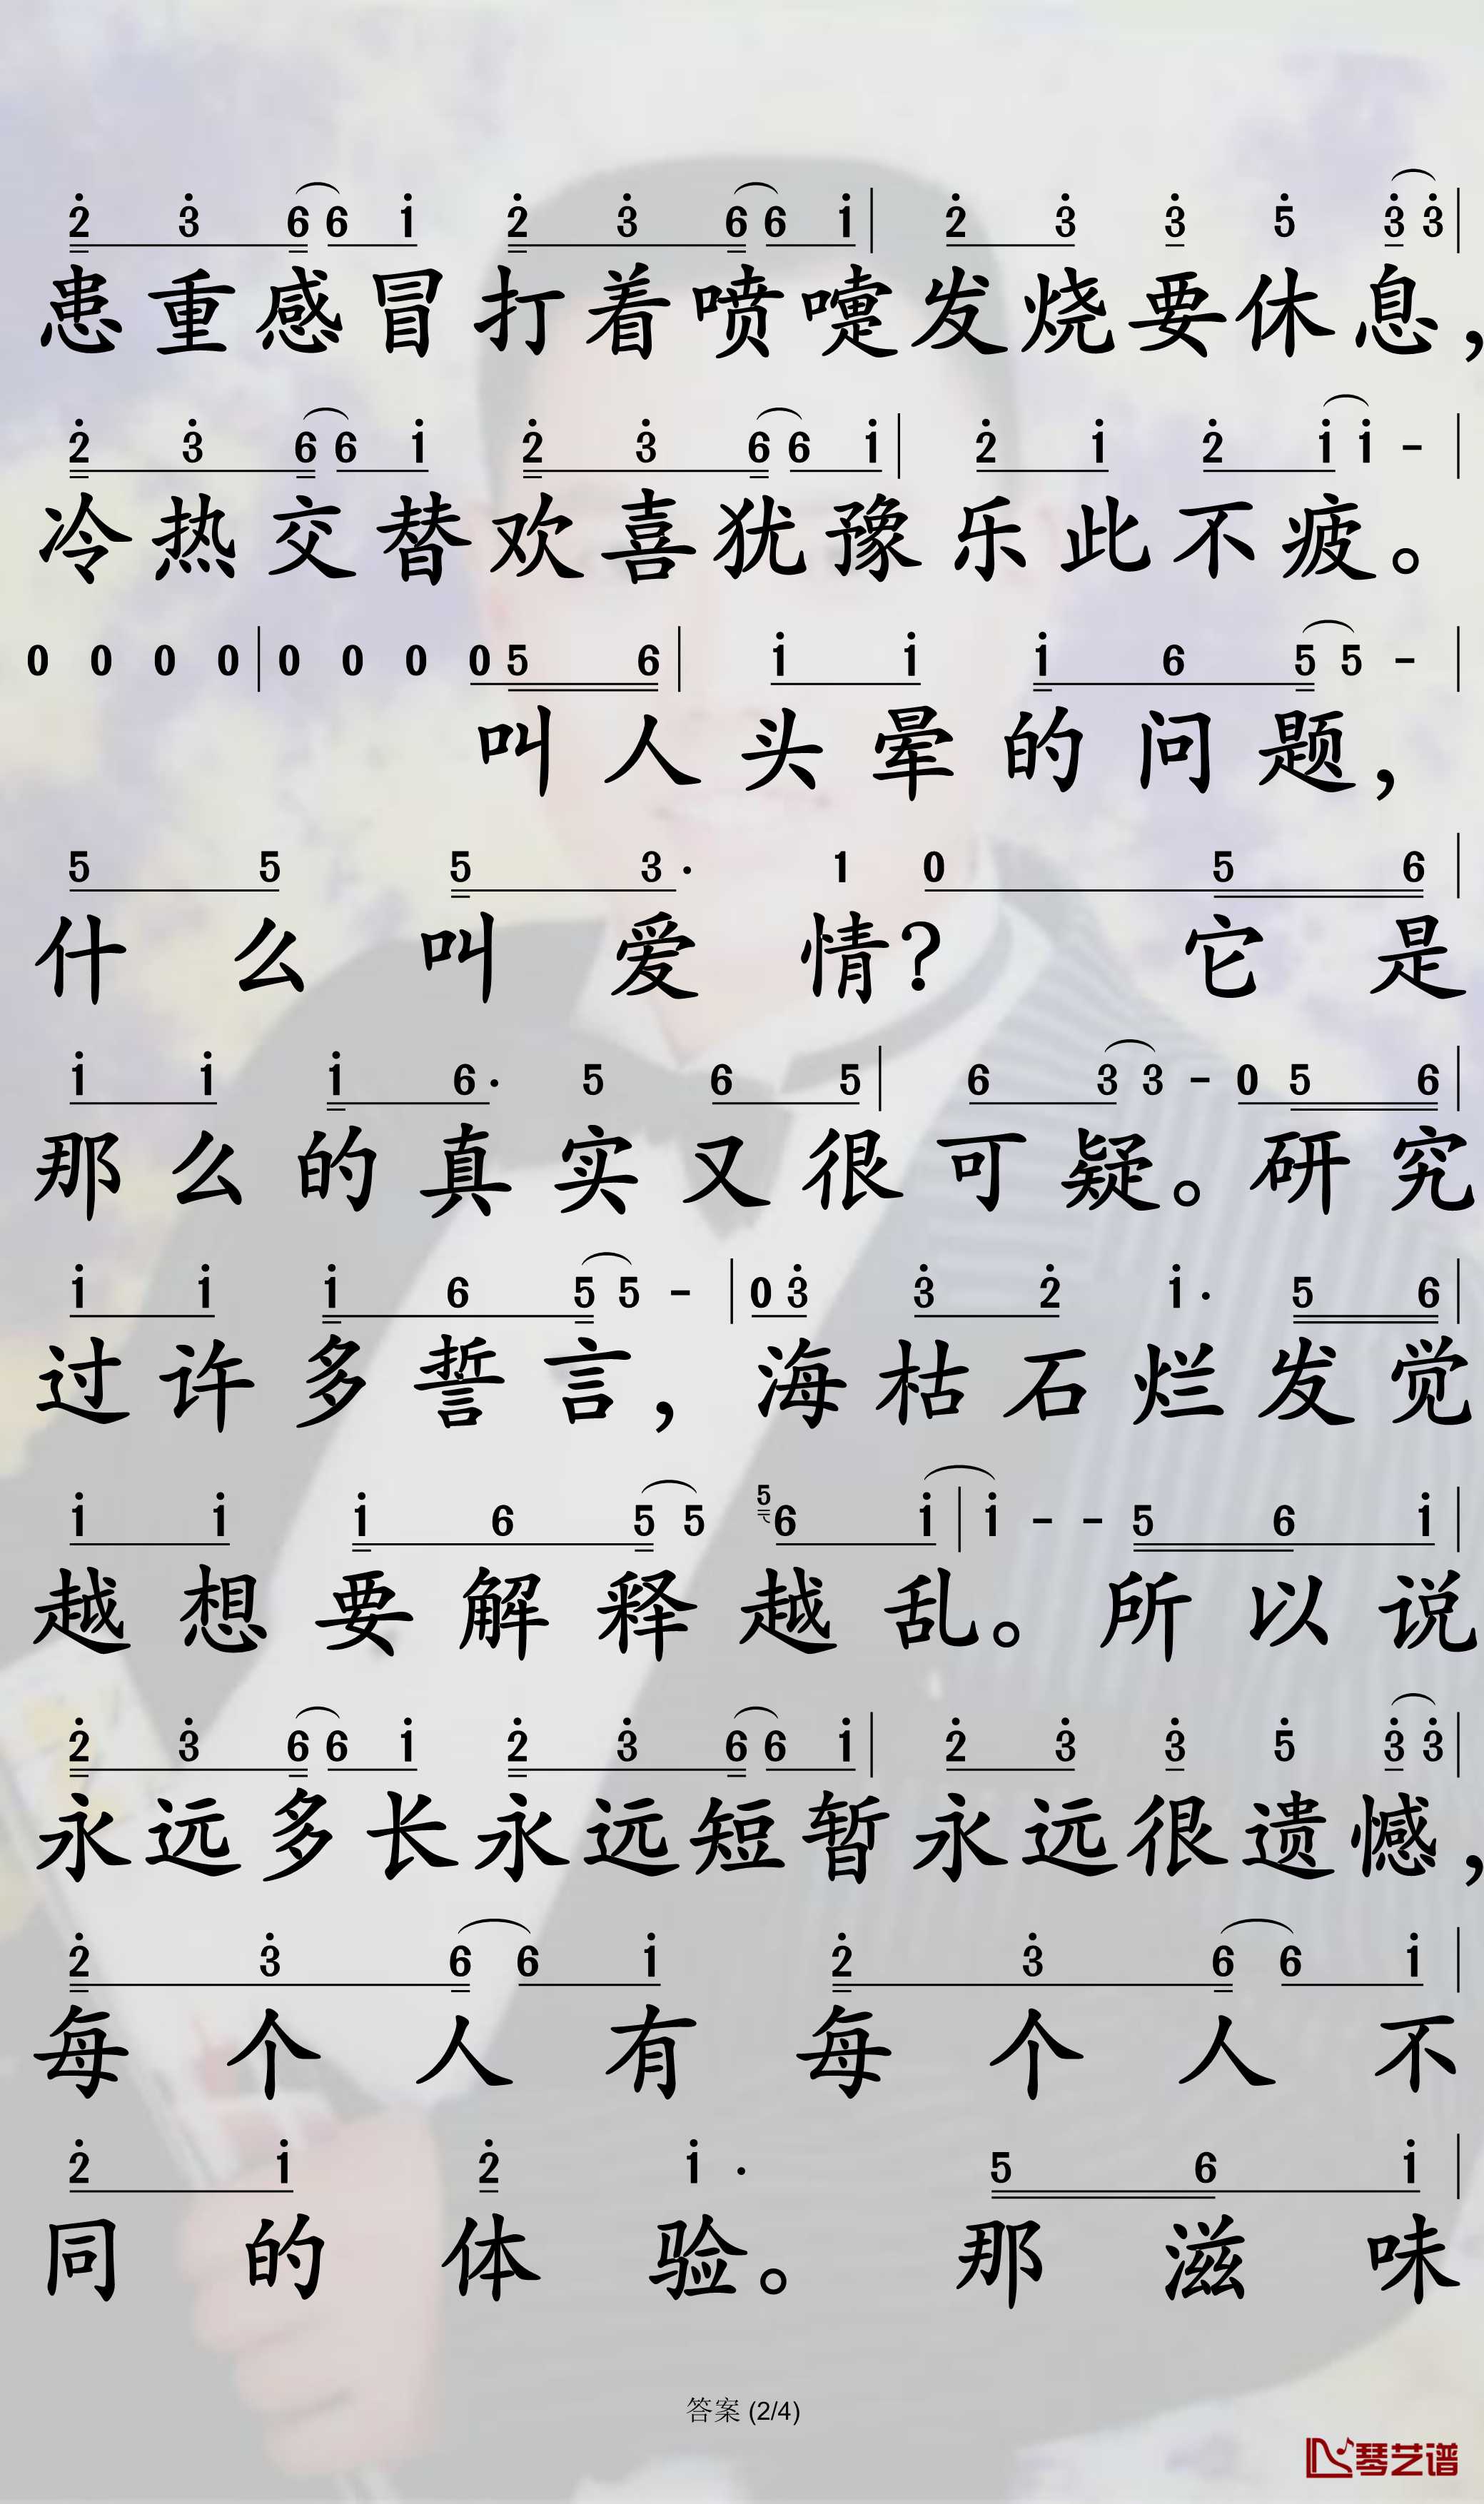 2̇ 3̇ 6 6 1̇ 2̇ 3̇ 6 6 1̇ | 2̇ 3̇ 3̇ 5̇ 3̇ 3̇ |
患重感冒打着喷嚏发烧要休息，
2̇ 3̇ 6 6 1̇ 2̇ 3̇ 6 6 1̇ | 2̇ 1̇ 2̇ 1̇ 1̇ - |
冷热交替欢喜犹豫乐此不疲。
0 0 0 0 | 0 0 0 0 5 6 | 1̇ 1̇ 1̇ 6 5 5 - |
叫人头晕的问题，
5 5 5 3· 1 0 5 6 |
什么叫爱情？它是
1̇ 1̇ 1̇ 6· 5 6 5 | 6 3 3 - 0 5 6 |
那么的真实又很可疑。研究
1̇ 1̇ 1̇ 6 5 5 - | 0 3̇ 3̇ 2̇ 1̇· 5 6 |
过许多誓言，海枯石烂发觉
1̇ 1̇ 1̇ 6 5 5 5 6 1̇ | 1̇ - - 5 6 1̇ |
越想要解释越乱。所以说
2̇ 3̇ 6 6 1̇ 2̇ 3̇ 6 6 1̇ | 2̇ 3̇ 3̇ 5̇ 3̇ 3̇ |
永远多长永远短暂永远很遗憾，
2̇ 3̇ 6 6 1̇ 2̇ 3̇ 6 6 1̇ |
每个人有每个人不
2̇ 1̇ 2̇ 1̇· 5 6 1̇ |
同的体验。那滋味
答案 (2/4)
琴艺谱